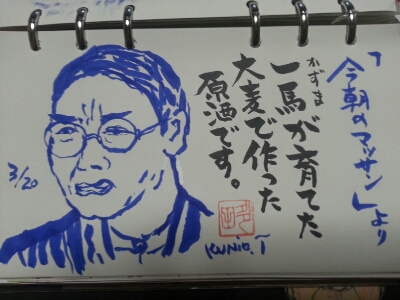 「今朝のマッサン」より
かずま
一馬が育てた
大麦で作った
原酒です。
3/20
KUNIO.T